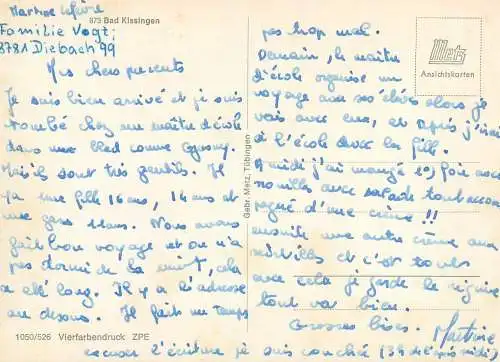 Martine Lefèvre
Familie Vogt
8781 Diebach 99
873 Bad Kissingen
Mes chers parents
Je suis bien arrivé et je suis
tombé chez un maître d'école
dans une bled comme
Mais ils sont très gentils. Il
y a une fille 16 ans, 14 ans et
une gens 11 ans. Nous avons
fait bon voyage et on n'a
pas dormi de la nuit, cela
a été long. Il y a l'adresse
au dessus. Il fait un temps
1050/526 Vierfarbendruck ZPE
Gebr. Metz, Tübingen
Metz
Ansichtskarten
pas trop mal.
Demain, le maître
d'école organise un
voyage aux ses élèves alors je
vais avec eux, et après j'irai
à l'école avec la fille.
A midi j'ai mangé 19 fois avec
nouilles avec salade tout accom
pagné d'une crème !!
ensuite une autre crème aux
mirtilles et c'est tout
avec cela je garde le régime
tout va bien.
Grosses bises. Martine
excuser l'écriture je suis couchée (13h de l'après midi)